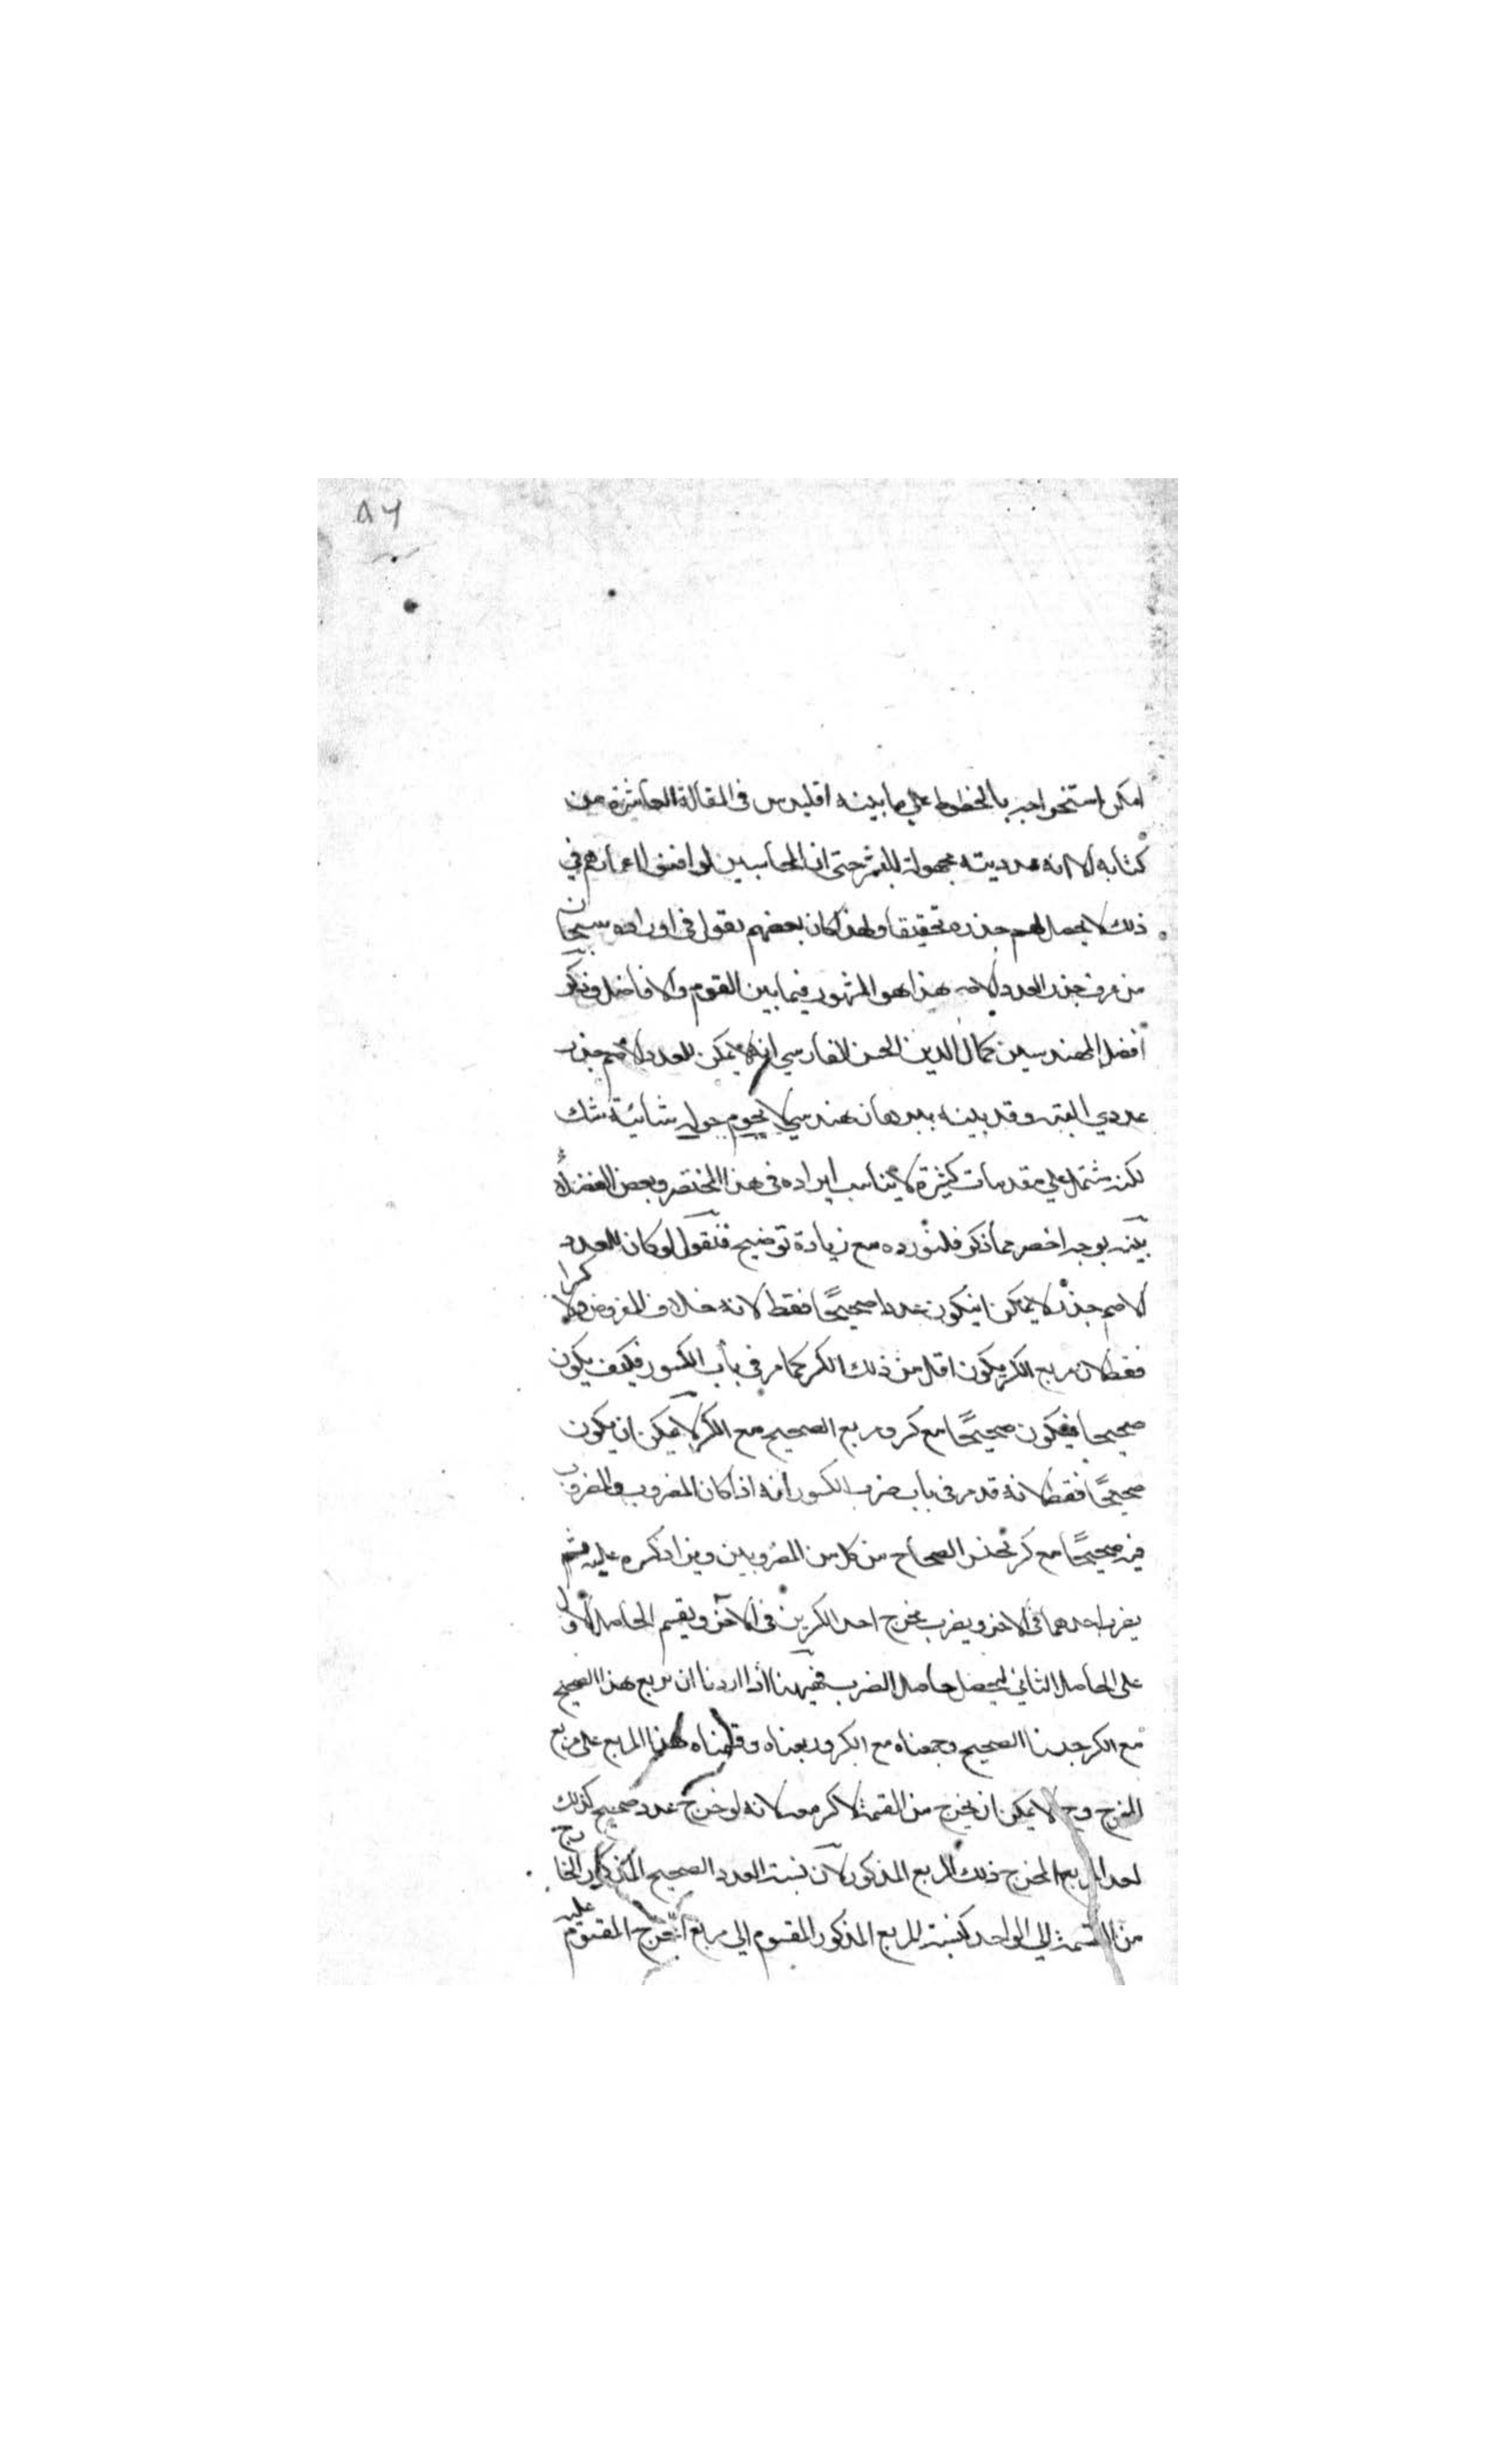 ٨٦
امكن استخراجه بالخطوط على ما بينه اقليدس فى المقالة العاشرة من
كتابه الا انه عدديته مجهولة للبشر حتى ان المحاسبين لو افنوا اعمارهم في
ذلك لا يحصل لهم جذره تحقيقا ولهذا كان بعضهم يقول فى اوراده سبحان
من عرف جذر العدد الاصم هذا هو المشهور فيما بين القوم والافاضل وذكر
افضل المهندسين كمال الدين الحسن الفارسي انه لا يمكن للعدد الاصم جذر
عددي البتة وقد بينه ببرهان هندسي لا يحوم حوله شائبة شك
لكنه مشتمل على مقدمات كثيرة لا يناسب ايراده فى هذا المختصر وبعض الفضلاء
بيّنه بوجه اخصر مما ذكر فلنورده مع زيادة توضيح فنقول لو كان للعدد
الاصم جذر لا يمكن ان يكون عددا صحيحًا فقط لانه خلاف المفروض ولا كسرا
فقط لان مربع الكسر يكون اقل من ذلك الكسر كما مر فى باب الكسور فكيف يكون
صحيحا فيكون صحيحًا مع كسر ومربع الصحيح مع الكسر لا يمكن ان يكون
صحيحًا فقط لانه قد مر فى باب ضرب الكسور انه اذا كان المضروب والمضروب
فيه صحيحًا مع كسر نجنس الصحاح من كل من المضروبين ويزاد كسره عليه ثم
يضرب احدهما فى الاخر ويضرب مخرج احد الكسرين فى الآخر ويقسم الحاصل الاول
على الحاصل الثاني ليحصل حاصل الضرب فههنا اذا اردنا ان نربع هذا الصحيح
مع الكسر جنسنا الصحيح وجمعناه مع الكسر وربعناه وقسمناه هذا المربع على مربع
المخرج وح لا يمكن ان يخرج من القسمة لا كسر معه لانه لو خرج عدد صحيح كذلك
لعد المربع المخرج ذلك المربع المذكور لان نسبة العدد الصحيح المذكور الخارج
من القسمة الى الواحد كنسبة المربع المذكور المقسوم الى مربع المخرج المقسوم عليه